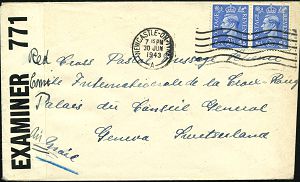 EXAMINER 771
NEWCASTLE-ON-TYNE
7.15 PM
30 JUN
1943
Red Cross Postal Message
Comité Internationale de la Croix-Rouge
Palais du Conseil General
Geneva Switzerland
Air Mail